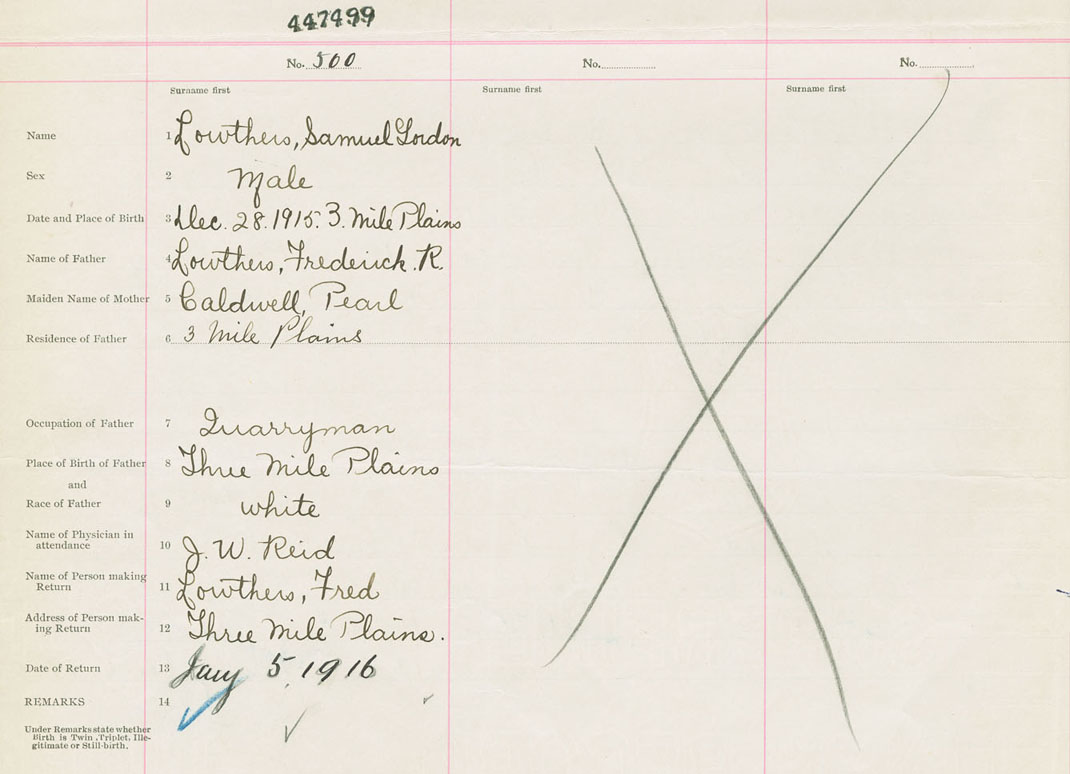 447499
No. 500 No. No.
Surname first Surname first Surname first
Name 1 Lowthers, Samuel Gordon
Sex 2 Male
Date and Place of Birth 3 Dec. 28. 1915. 3. Mile Plains
Name of Father 4 Lowthers, Frederick. R.
Maiden Name of Mother 5 Caldwell, Pearl
Residence of Father 6 3 Mile Plains
Occupation of Father 7 Quarryman
Place of Birth of Father 8 Three Mile Plains
and
Race of Father 9 white
Name of Physician in
attendance 10 J. W. Reid
Name of Person making
Return 11 Lowthers, Fred
Address of Person mak-
ing Return 12 Three Mile Plains.
Date of Return 13 Jany 5, 1916
REMARKS 14
Under Remarks state whether
Birth is Twin, Triplet, Ille-
gitimate or Still-birth.